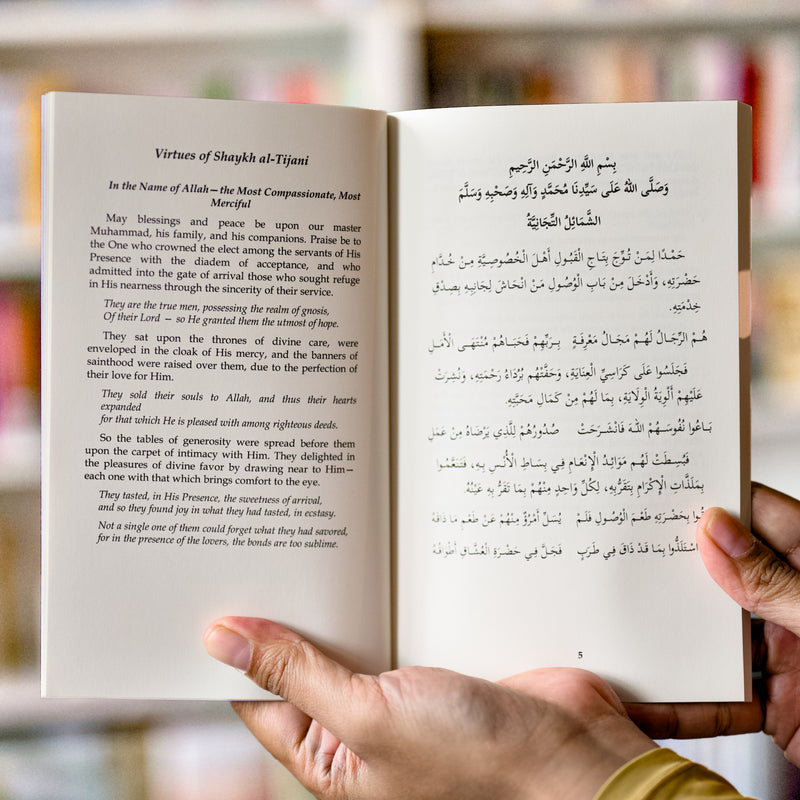 Virtues of Shaykh al-Tijani
In the Name of Allah—the Most Compassionate, Most
Merciful
May blessings and peace be upon our master
Muhammad, his family, and his companions. Praise be to
the One who crowned the elect among the servants of His
Presence with the diadem of acceptance, and who
admitted into the gate of arrival those who sought refuge
in His nearness through the sincerity of their service.
They are the true men, possessing the realm of gnosis,
Of their Lord — so He granted them the utmost of hope.
They sat upon the thrones of divine care, were
enveloped in the cloak of His mercy, and the banners of
sainthood were raised over them, due to the perfection of
their love for Him.
They sold their souls to Allah, and thus their hearts
expanded
for that which He is pleased with among righteous deeds.
So the tables of generosity were spread before them
upon the carpet of intimacy with Him. They delighted in
the pleasures of divine favor by drawing near to Him—
each one with that which brings comfort to the eye.
They tasted, in His Presence, the sweetness of arrival,
and so they found joy in what they had tasted, in ecstasy.
Not a single one of them could forget what they had savored,
for in the presence of the lovers, the bonds are too sublime.
بِسْمِ اللَّهِ الرَّحْمَنِ الرَّحِيمِ
وَصَلَّى اللهُ عَلَى سَيِّدِنَا مُحَمَّدٍ وَآلِهِ وَصَحْبِهِ وَسَلَّمَ
الشَّمَائِلُ التِّجَانِيَّةُ
حَمْدًا لِمَنْ تُوِّجَ بِتَاجِ الْقَبُولِ أَهْلَ الْخُصُوصِيَّةِ مِنْ خُدَّامِ
حَضْرَتِهِ، وَأَدْخَلَ مِنْ بَابِ الْوُصُولِ مَنْ انْحَاشَ لِجَانِبِهِ بِصِدْقِ
خِدْمَتِهِ.
هُمُ الرِّجَالُ لَهُمْ مَجَالُ مَعْرِفَةٍ بِرَبِّهِمْ فَحَبَاهُمْ مُنْتَهَى الْأَمَلِ
فَجَلَسُوا عَلَى كَرَاسِيِّ الْعِنَايَةِ، وَحَفَّتْهُم بُرْدَاءُ رَحْمَتِهِ، وَنُشِرَتْ
عَلَيْهِمْ أَلْوِيَةُ الْوِلَايَةِ، بِمَا لَهُمْ مِنْ كَمَالِ مَحَبَّتِهِ.
بَاعُوا نُفُوسَهُمْ اللهَ فَانْشَرَحَتْ صُدُورُهُمْ لِلَّذِي يَرْضَاهُ مِنْ عَمَلِ
فَبُسِطَتْ لَهُم مَوَائِدُ الْإِنْعَامِ فِي بِسَاطِ الْأُنْسِ بِهِ، فَتَنَعَّمُوا
بِمَلَذَّاتِ الْإِكْرَامِ بِتَقَرُّبِهِ، لِكُلِّ وَاحِدٍ مِنْهُمْ بِمَا تَقَرُّ بِهِ عَيْنُهُ
بِحَضْرَتِهِ طَعْمَ الْوُصُولِ فَلَمْ يُسَلِّ أَمْرُؤٌ مِنْهُمْ عَنْ طَعْمِ ما ذَاقَهُ
اسْتَلَذُّوا بِمَا قَدْ ذَاقَ فِي طَرَبٍ فَجَلَّ فِي حَضْرَةِ الْعُشَّاقِ أَطْوَاقُهُ
5